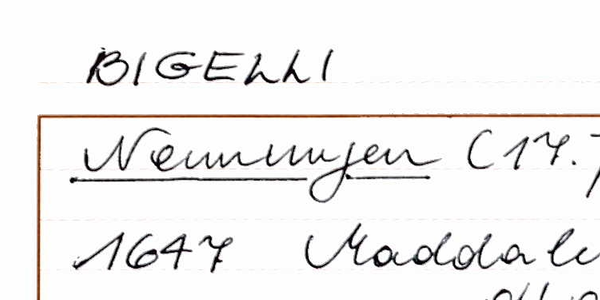 BIGELLI
Nennungen (17.)
1647 Maddale